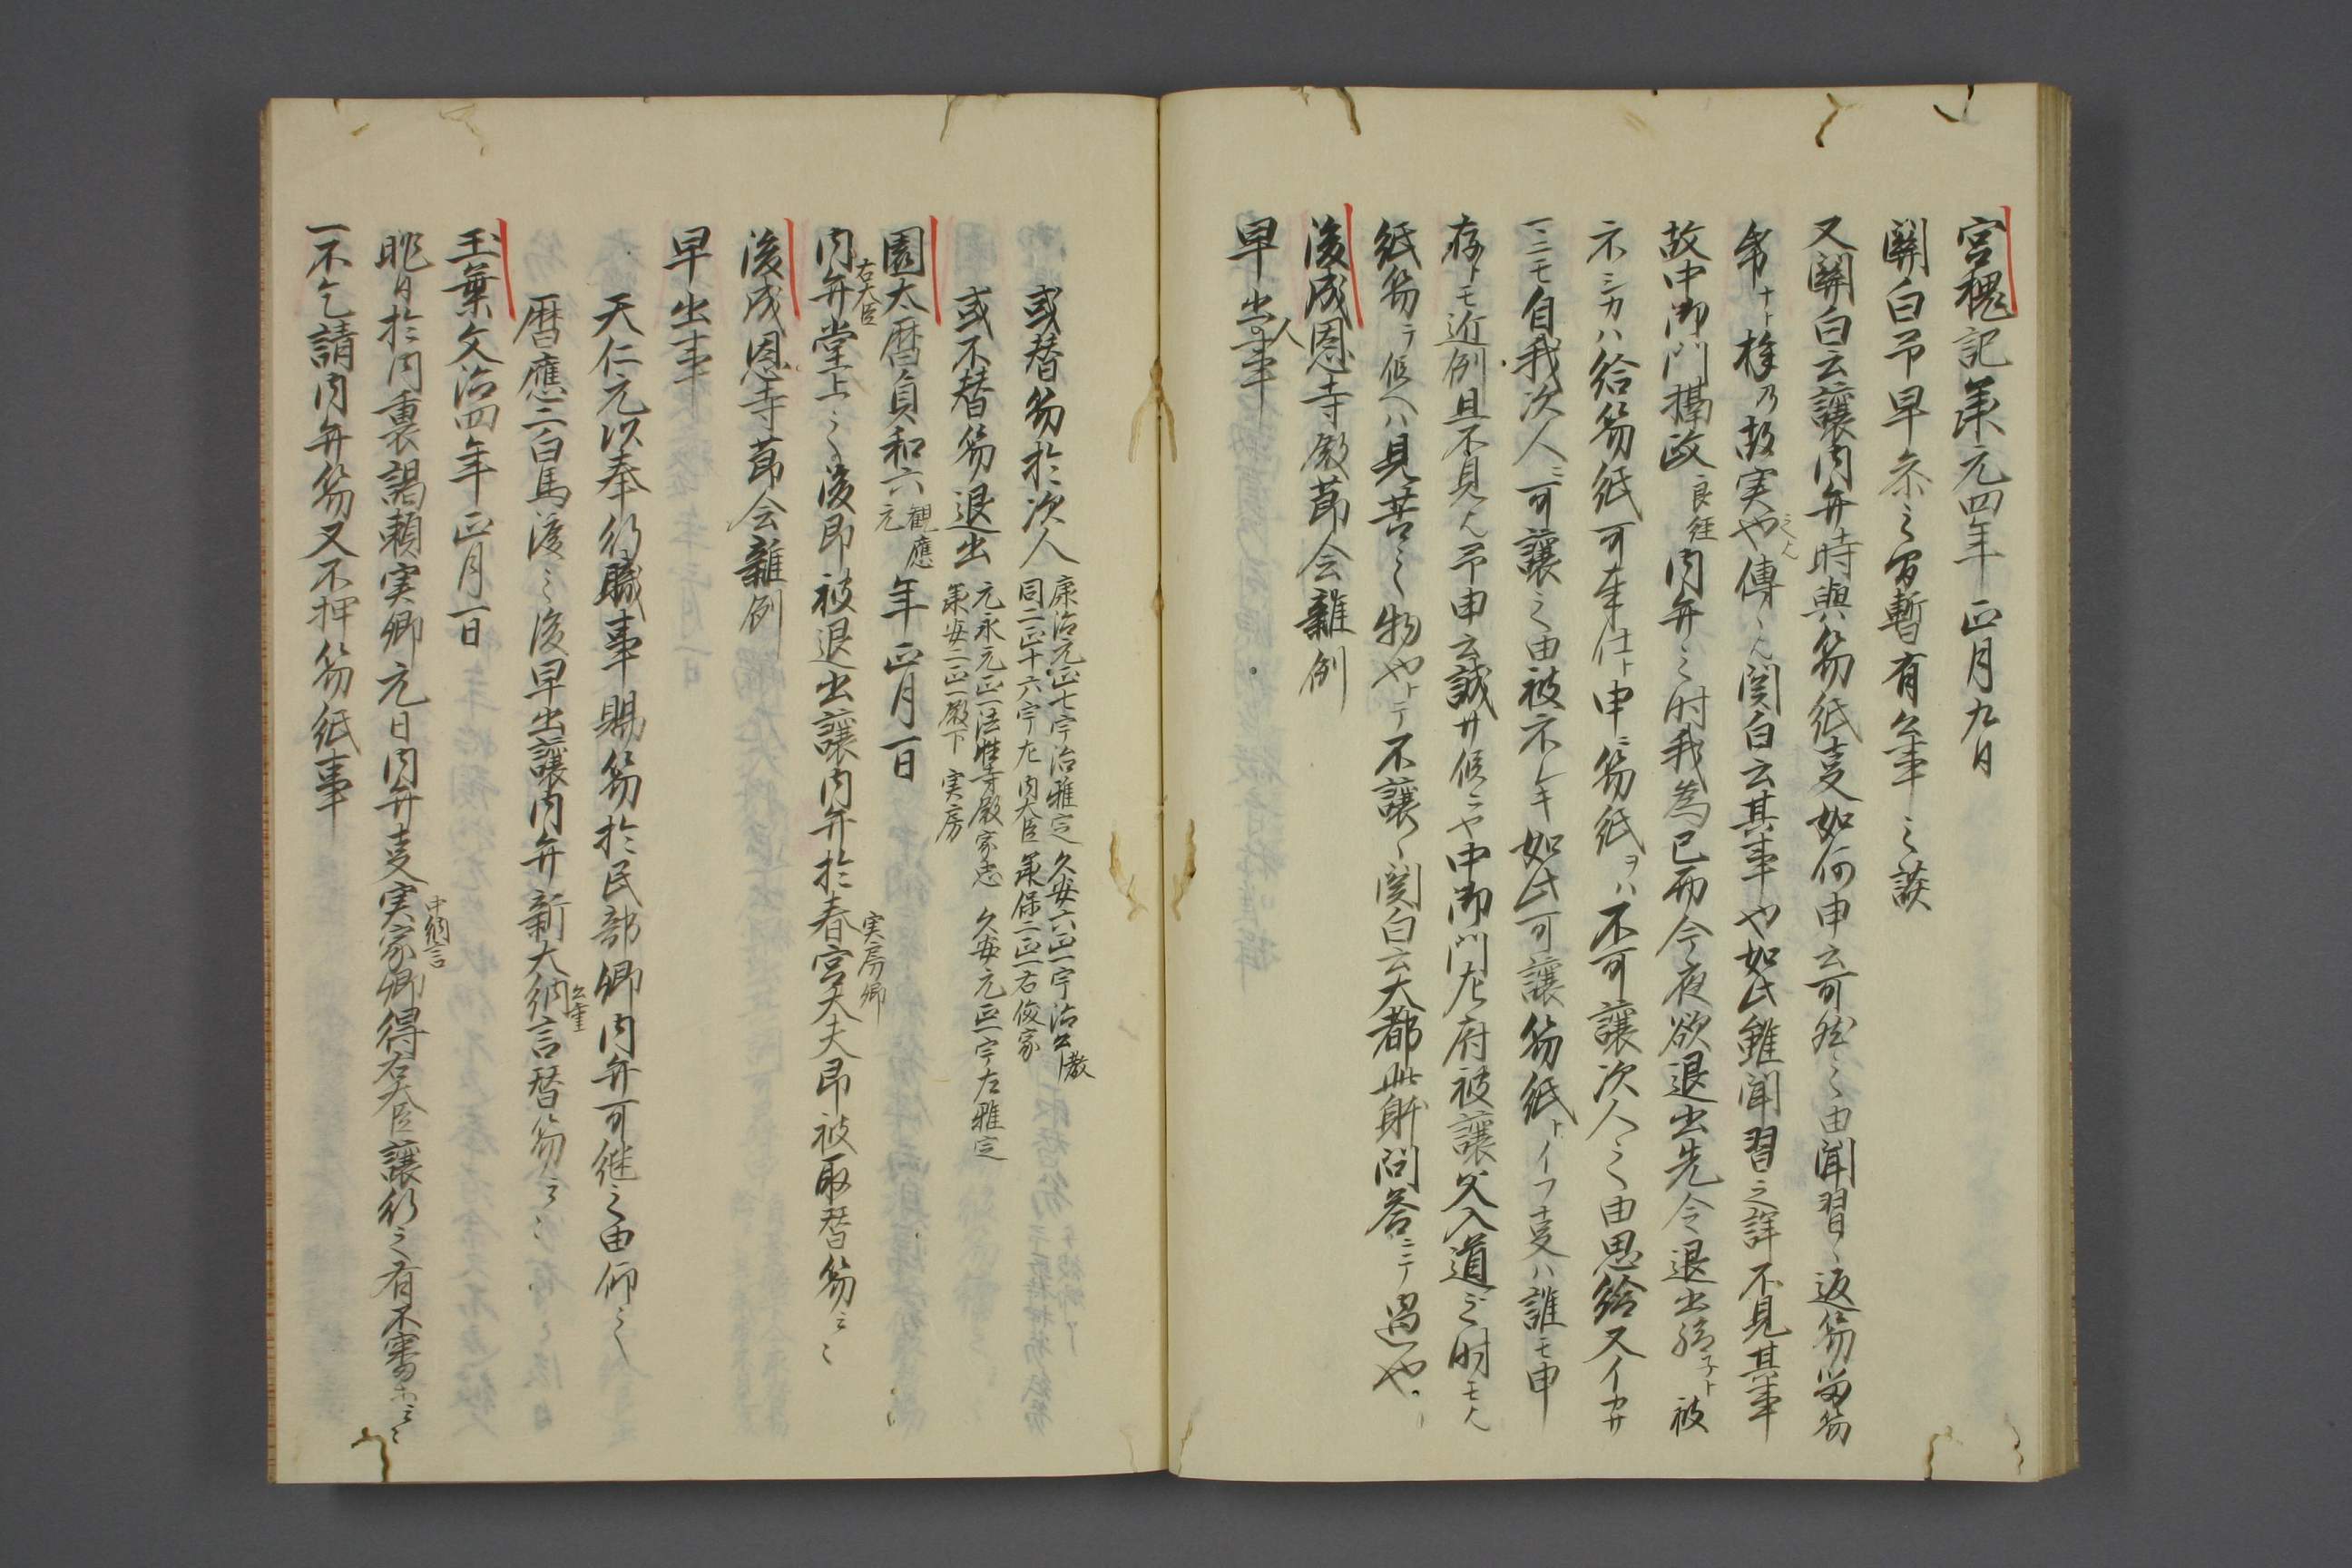 宮槐記 承元四年正月九日
關白予早参之間暫有公事之談
又關白云讓内弁時與笏紙叓如何申云可然之由聞習〻返笏留笏
帋ナト様乃故実也 傳〻 関白云其事也如此雖聞習之詳不見其事
故中御門攝政良経内弁之时我為已而今夜欲退出先令退出 被
不シカハ給笏紙可奉仕ト申ニ笏紙ヲハ不可讓次人之由思給又イカサ
一ニモ自我次人ニ可讓之由被示キ如此可讓笏紙トイフ叓ハ誰モ申
存トモ近例且不見 予申云誠サ候ニヤ中御門左府被讓父入道之时モ
紙笏テ候ヘハ見苦之物也トテ不讓〻関白云大都此躰問答ニテ過也
後成恩寺殿莭会雜例
早出人事
或替笏於次人 康治元正七宇治雅定 久安六正一宇治公教 同二正十六宇左 内大臣 承保二正一右俊家
或不替笏退出 元永元正一法性寺殿家忠 久安元正一宇左雅定 承安二正一殿下 実房
園太暦貞和六観應元年正月一日
内弁右大臣堂上之後即被退出讓内弁於春宮大夫実房卿即被取替笏云〻
後成恩寺莭会雜例
早出事
天仁元以奉行職事賜笏於民部卿内弁可継之由仰之
暦應二白馬渡之後早出讓内弁新大納言公重替笏云〻
玉葉文治四年正月一日
昨日於内裏謁頼実卿元日内弁叓中納言実家卿得右大臣讓行之有不審等云〻
一不乞請内弁笏又不押笏紙事